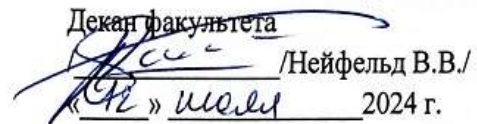 Декан факультета
/Нейфельд В.В./
« » июля 2024 г.